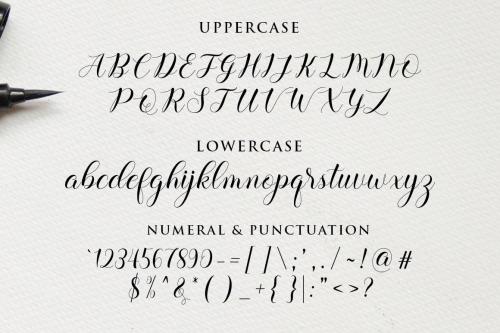 UPPERCASE
ABCDEFGHIJKLMNO
PQRSTUVWXYZ
LOWERCASE
abcdefghijklmnopqrstuvwxyz
NUMERAL & PUNCTUATION
`1234567890-=[]\;',./~!@#
$%^&*()_+{}|:"<>?